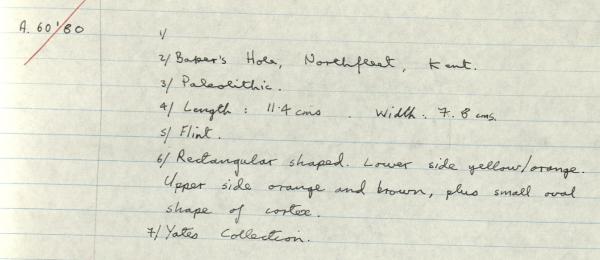 A. 60'80
1/
2/ Baker's Hole, Northfleet, Kent.
3/ Paleolithic.
4/ Length : 11.4 cms . Width : 7.8 cms.
5/ Flint.
6/ Rectangular shaped. Lower side yellow/orange.
Upper side orange and brown, plus small oval
shape of cortex.
7/ Yates Collection.